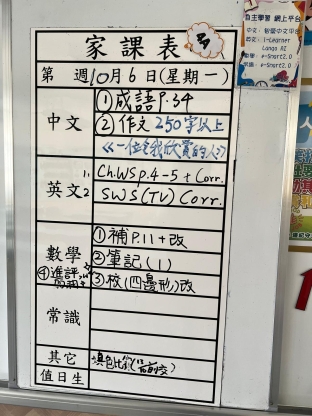 家課表
自主學習 網上平台
i-Learner
e-Smart2.0
e-Smart2.0
第 週10月6日(星期一)
中文
①成語P.34
②作文250字以上
《一位令我欣賞的人》
英文
1. Ch.WS p.4-5 + Corr.
2. SWS (TV) Corr.
數學
①補P.11+改
②筆記(1)
③校(四邊形)改
④進評
常識
其它
填色比賽
值日生